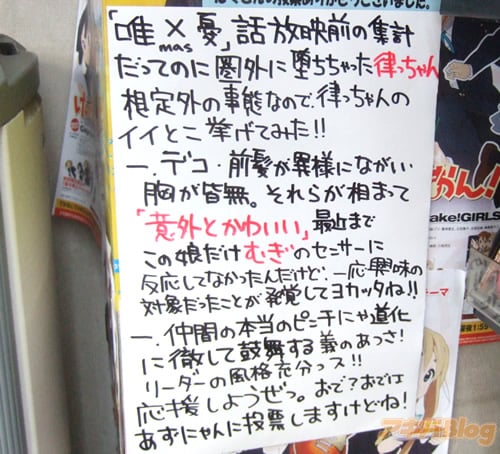 「唯×憂」話放映前の集計
mas
だってのに圏外に堕ちちゃった律っちゃん
想定外の事態なので、律っちゃんの
イイとこ挙げてみた!!
一.デコ・前髪が異様にながい
胸が皆無。それらが相まって
「意外とかわいい」最近まで
この娘だけむぎのセンサーに
反応してなかったんだけど、一応興味の
対象だったことが発覚してヨカッタね!!
一.仲間の本当のピンチにゃ道化
に徹して鼓舞する義のあっさ!
リーダーの風格充分っス!!
応援しようぜっ。おで?おでは
あずにゃんに投票しますけどね!
おん!
ake!GIRLS
テーマ
アキバBlog